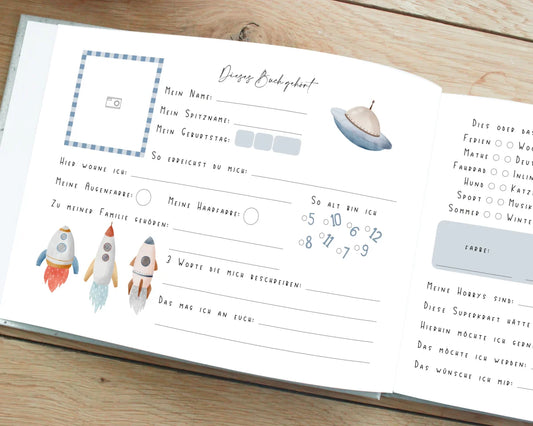 Dieses Buch gehört
Mein Name:
Mein Spitzname:
Mein Geburtstag:
So erreichst du mich:
Hier wohne ich:
Meine Augenfarbe:
Meine Haarfarbe:
Zu meiner Familie gehören:
So alt bin ich
5 10 6 12
8 11 7 9
3 Worte die mich beschreiben:
Das mag ich an euch:
Dies oder das
Ferien
Mathe
Fahrrad
Hund
Sport Musik
Sommer Winte
Farbe:
Meine Hobbys sind:
Diese Superkraft hätte
Hierhin möchte ich gern
Das möchte ich werden:
Das wünsche ich mir: